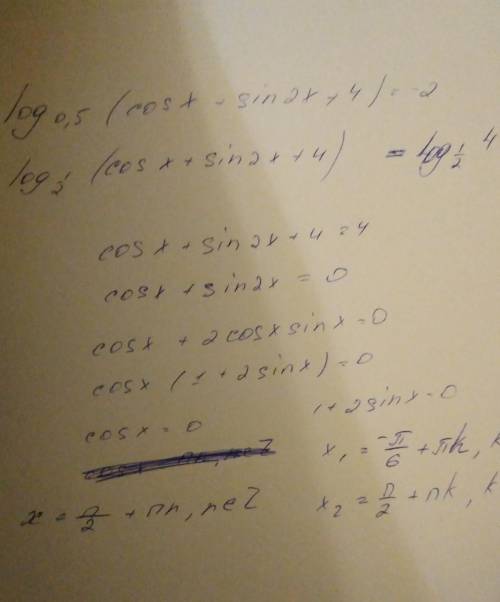 log₀,₅ (cosx + sin2x + 4) = -2
log½ (cosx + sin2x + 4) = log½ 4
cosx + sin2x + 4 = 4
cosx + sin2x = 0
cosx + 2cosx sinx = 0
cosx (1 + 2sinx) = 0
cosx = 0 1 + 2sinx = 0
x₁ = -π/6 + πk, k
x = π/2 + πn, n∈Z x₂ = π/2 + πk, k